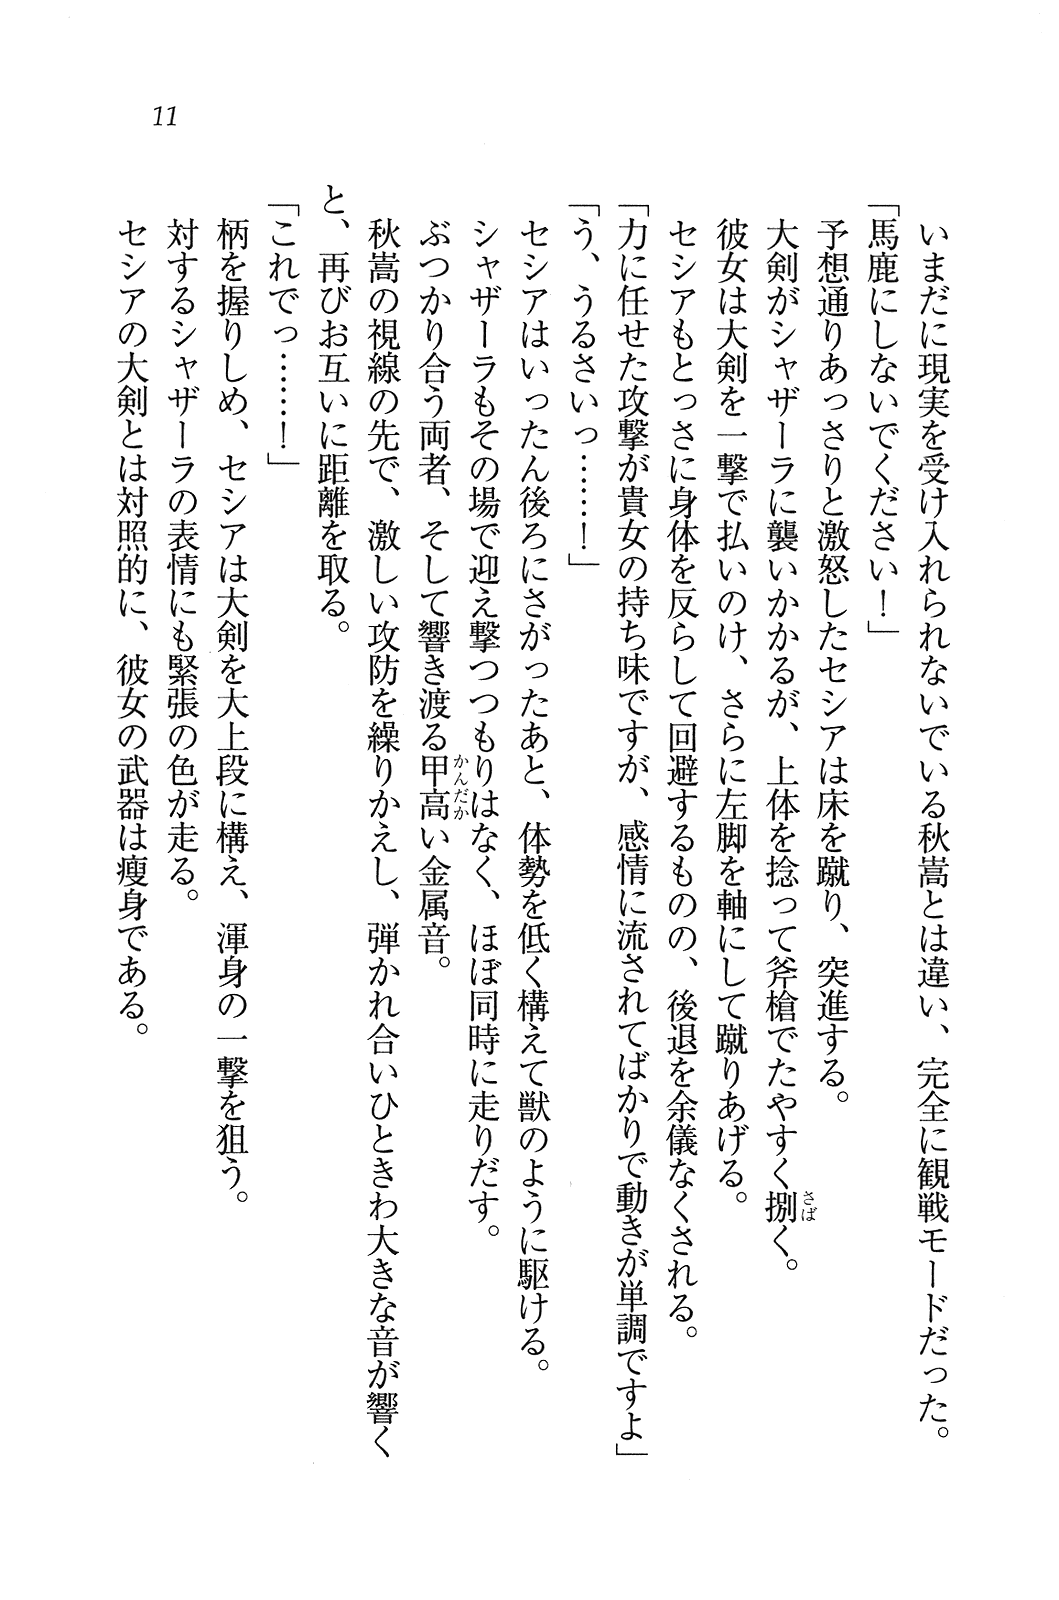 11
いまだに現実を受け入れられないでいる秋嵩とは違い、完全に観戦モードだった。
「馬鹿にしないでください！」
予想通りあっさりと激怒したセシアは床を蹴り、突進する。
大剣がシャザーラに襲いかかるが、上体を捻って斧槍でたやすく捌く。
さば
彼女は大剣を一撃で払いのけ、さらに左脚を軸にして蹴りあげる。
セシアもとっさに身体を反らして回避するものの、後退を余儀なくされる。
「力に任せた攻撃が貴女の持ち味ですが、感情に流されてばかりで動きが単調ですよ」
「う、うるさいっ……！」
セシアはいったん後ろにさがったあと、体勢を低く構えて獣のように駆ける。
シャザーラもその場で迎え撃つつもりはなく、ほぼ同時に走りだす。
ぶつかり合う両者、そして響き渡る甲高い金属音。
かんだか
秋嵩の視線の先で、激しい攻防を繰りかえし、弾かれ合いひときわ大きな音が響く
と、再びお互いに距離を取る。
「これでっ……！」
柄を握りしめ、セシアは大剣を大上段に構え、渾身の一撃を狙う。
対するシャザーラの表情にも緊張の色が走る。
セシアの大剣とは対照的に、彼女の武器は痩身である。